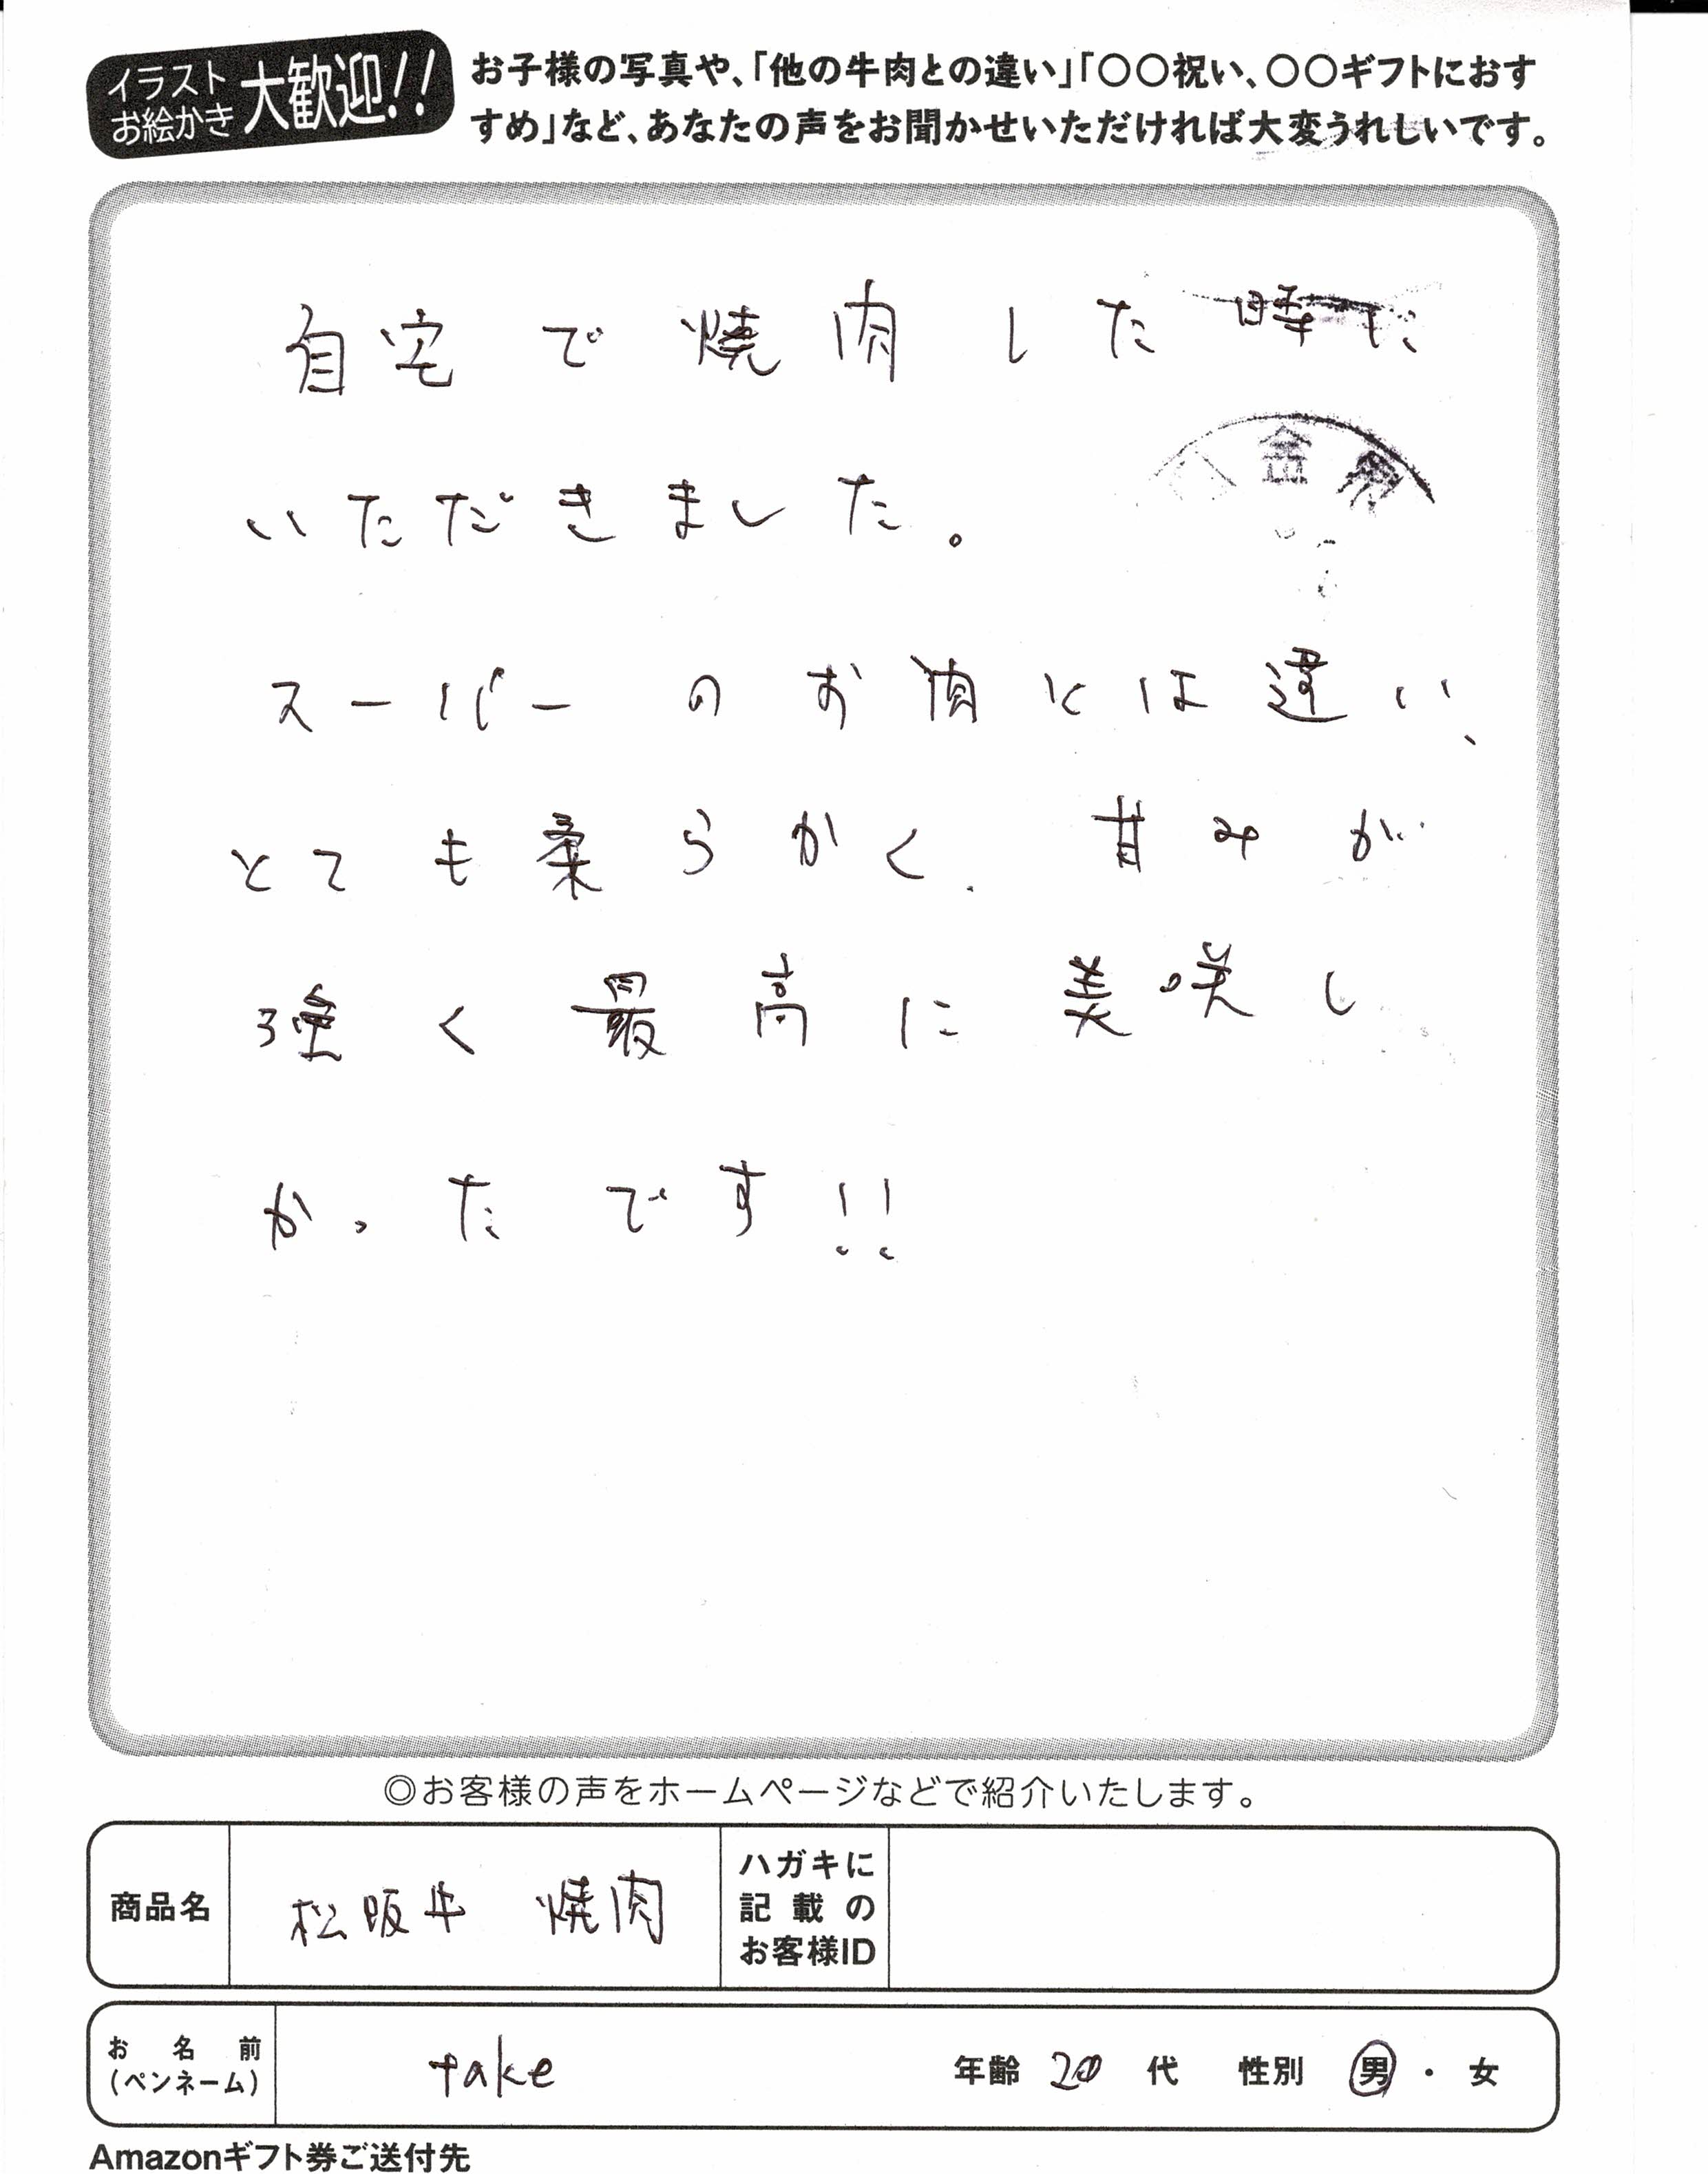 イラスト
お絵かき
大歓迎!!
お子様の写真や、「他の牛肉との違い」「〇〇祝い、〇〇ギフトにおす
すめ」など、あなたの声をお聞かせいただければ大変うれしいです。
自宅で焼肉した時に
いただきました。
スーパーのお肉とは違い、
とても柔らかく、甘みが
強く最高に美味し
かったです!!
◎お客様の声をホームページなどで紹介いたします。
商品名 松阪牛 焼肉
ハガキに
記載の
お客様ID
お名前
(ペンネーム)
take 年齢 20 代 性別 男・女
Amazonギフト券ご送付先